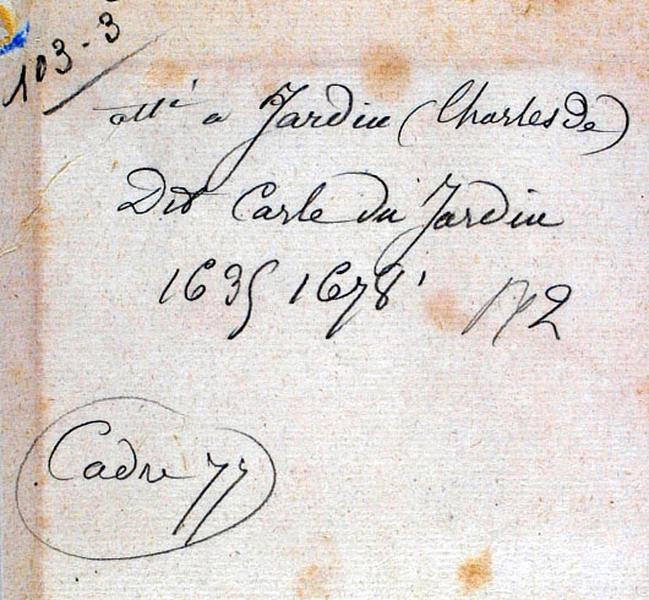 103-3
atté a Jardin (Charles De)
Dit Carle du Jardin
1635 1678
Cadre 77